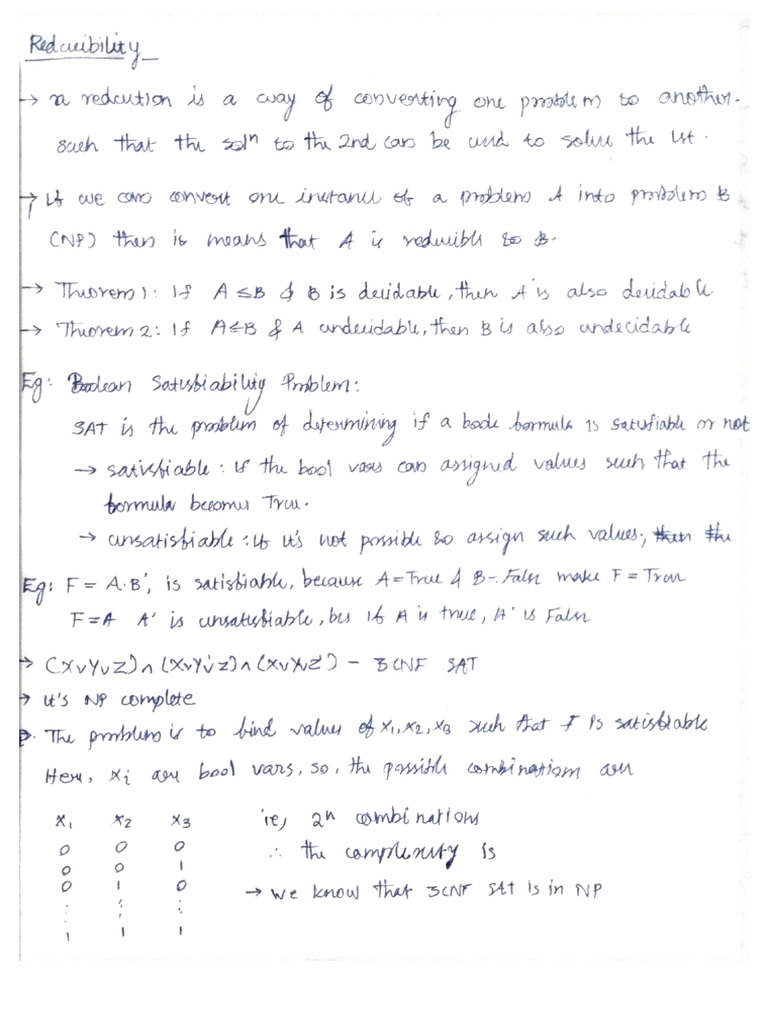 Reducibility
→ a redcution is a way of converting one problem to another.
such that the solⁿ to the 2nd can be used to solve the 1st.
→ If we can convert one instance of a problem A into problem B
(NP) then is means that A is reducible to B.
→ Theorem 1: If A ≤ B & B is decidable, then A is also decidable
→ Theorem 2: If A ≤ B & A undecidable, then B is also undecidable
Eg: Boolean Satisfiability Problem:
SAT is the problem of determining if a boole formula is satisfiable or not
→ satisfiable: if the bool vars can assigned values such that the
formula becomes True.
→ unsatisfiable: If it's not possible to assign such values,
Eg: F = A·B', is satisfiable, because A = True & B = False make F = True
F = A A' is unsatisfiable, bcs if A is true, A' is False
→ (X∨Y∨Z)∧(X∨Y'∨Z)∧(X∨Y∨Z') – 3CNF SAT
→ it's NP complete
The problem is to find values of x₁, x₂, x₃ such that F is satisfiable
Here, xᵢ are bool vars, so, the possible combinations are
x₁ x₂ x₃ ie, 2ⁿ combinations
0 0 0 ∴ the complexity is
0 0 1
0 1 0 → we know that 3CNF SAT is in NP
⋮ ⋮ ⋮
1 1 1